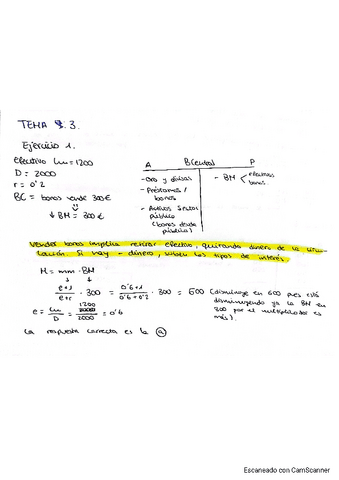 TEMA 3.
Ejercicio 1.
efectivo Lm = 1200
D = 2000
r = 0'2
BC = bonos vende 300€
↓ BM = 300€
A BCentral P
- Oro y divisas
- Préstamos / bonos
- Activos sector público
(bonos deuda pública)
- BM < efectivo
Vender bonos implica retirar efectivo, quitando dinero de la circu-
lación. Si hay - dinero, suben los tipos de interés.
M = mm · BM
e+1 / e+r · 300 = 0'6+1 / 0'6+0'2 · 300 = 600 (disminuye en 600 pues está
disminuyendo ya la BM en
300 por el multiplicador es
más).
e = Lm / D = 1200 / 2000 = 0'6
La respuesta correcta es la a
Escaneado con CamScanner